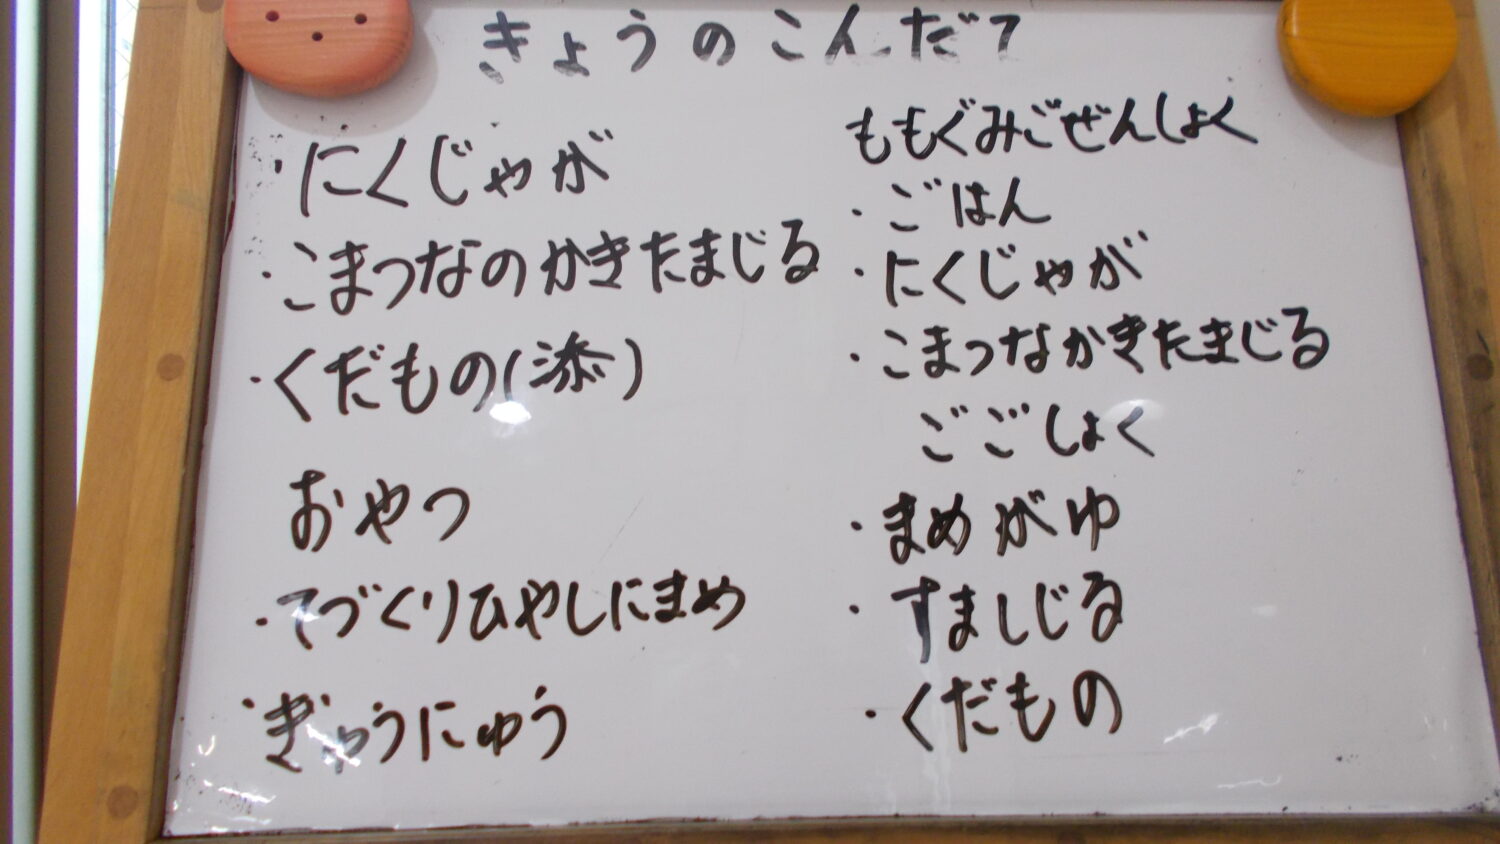 きょうのこんだて
・にくじゃが
・こまつなのかきたまじる
・くだもの(添)
おやつ
・てづくりひやしにまめ
・ぎゅうにゅう
ももぐみごぜんしょく
・ごはん
・にくじゃが
・こまつなかきたまじる
ごごしょく
・まめがゆ
・すましじる
・くだもの